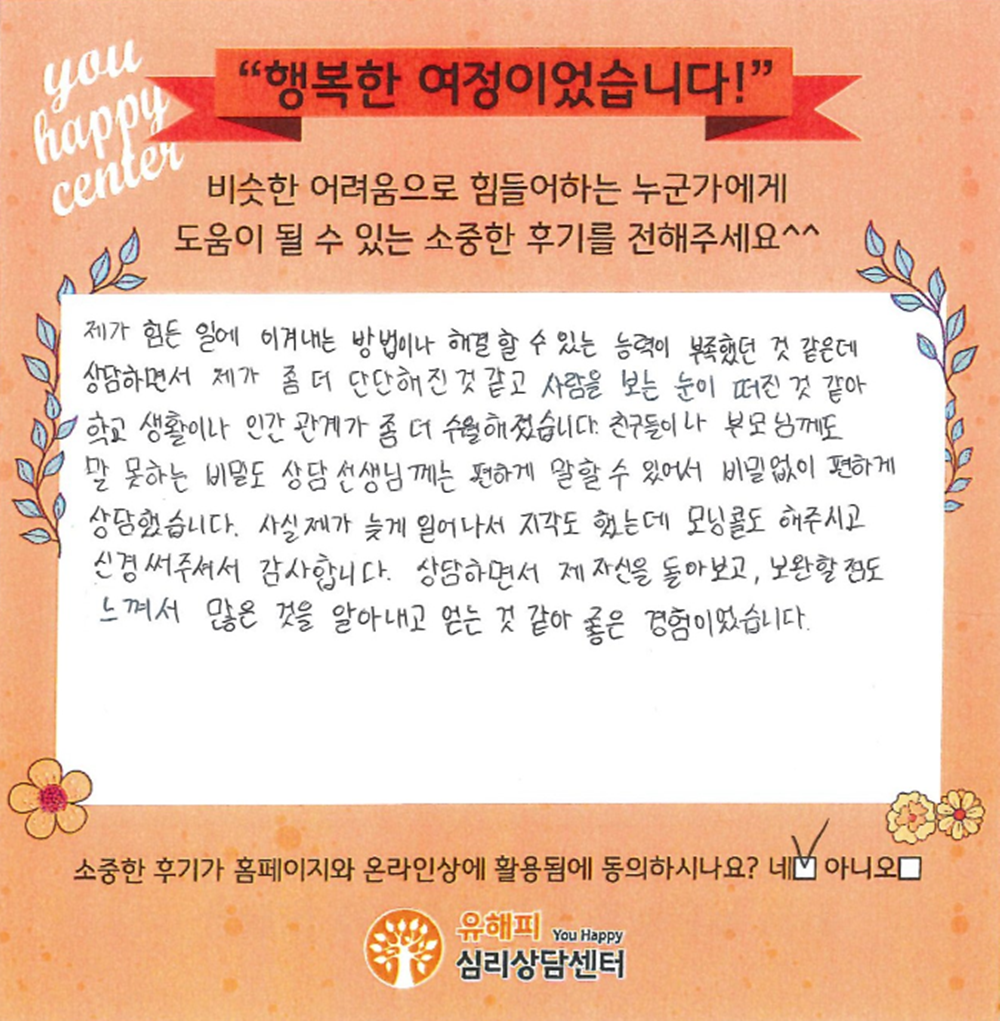 you
happy
center
“행복한 여정이었습니다!”
비슷한 어려움으로 힘들어하는 누군가에게
도움이 될 수 있는 소중한 후기를 전해주세요^^
제가 힘든 일에 이겨내는 방법이나 해결할 수 있는 능력이 부족했던 것 같은데
상담하면서 제가 좀 더 단단해진 것 같고 사람을 보는 눈이 떠진 것 같아
학교 생활이나 인간 관계가 좀 더 수월해졌습니다. 친구들이나 부모님께도
말 못하는 비밀도 상담 선생님께는 편하게 말할 수 있어서 비밀없이 편하게
상담했습니다. 사실 제가 늦게 일어나서 지각도 했는데 모닝콜도 해주시고
신경써주셔서 감사합니다. 상담하면서 제 자신을 돌아보고, 보완할 점도
느껴서 많은 것을 알아내고 얻는 것 같아 좋은 경험이었습니다.
소중한 후기가 홈페이지와 온라인상에 활용됨에 동의하시나요? 네☑ 아니오☐
유해피 You Happy
심리상담센터